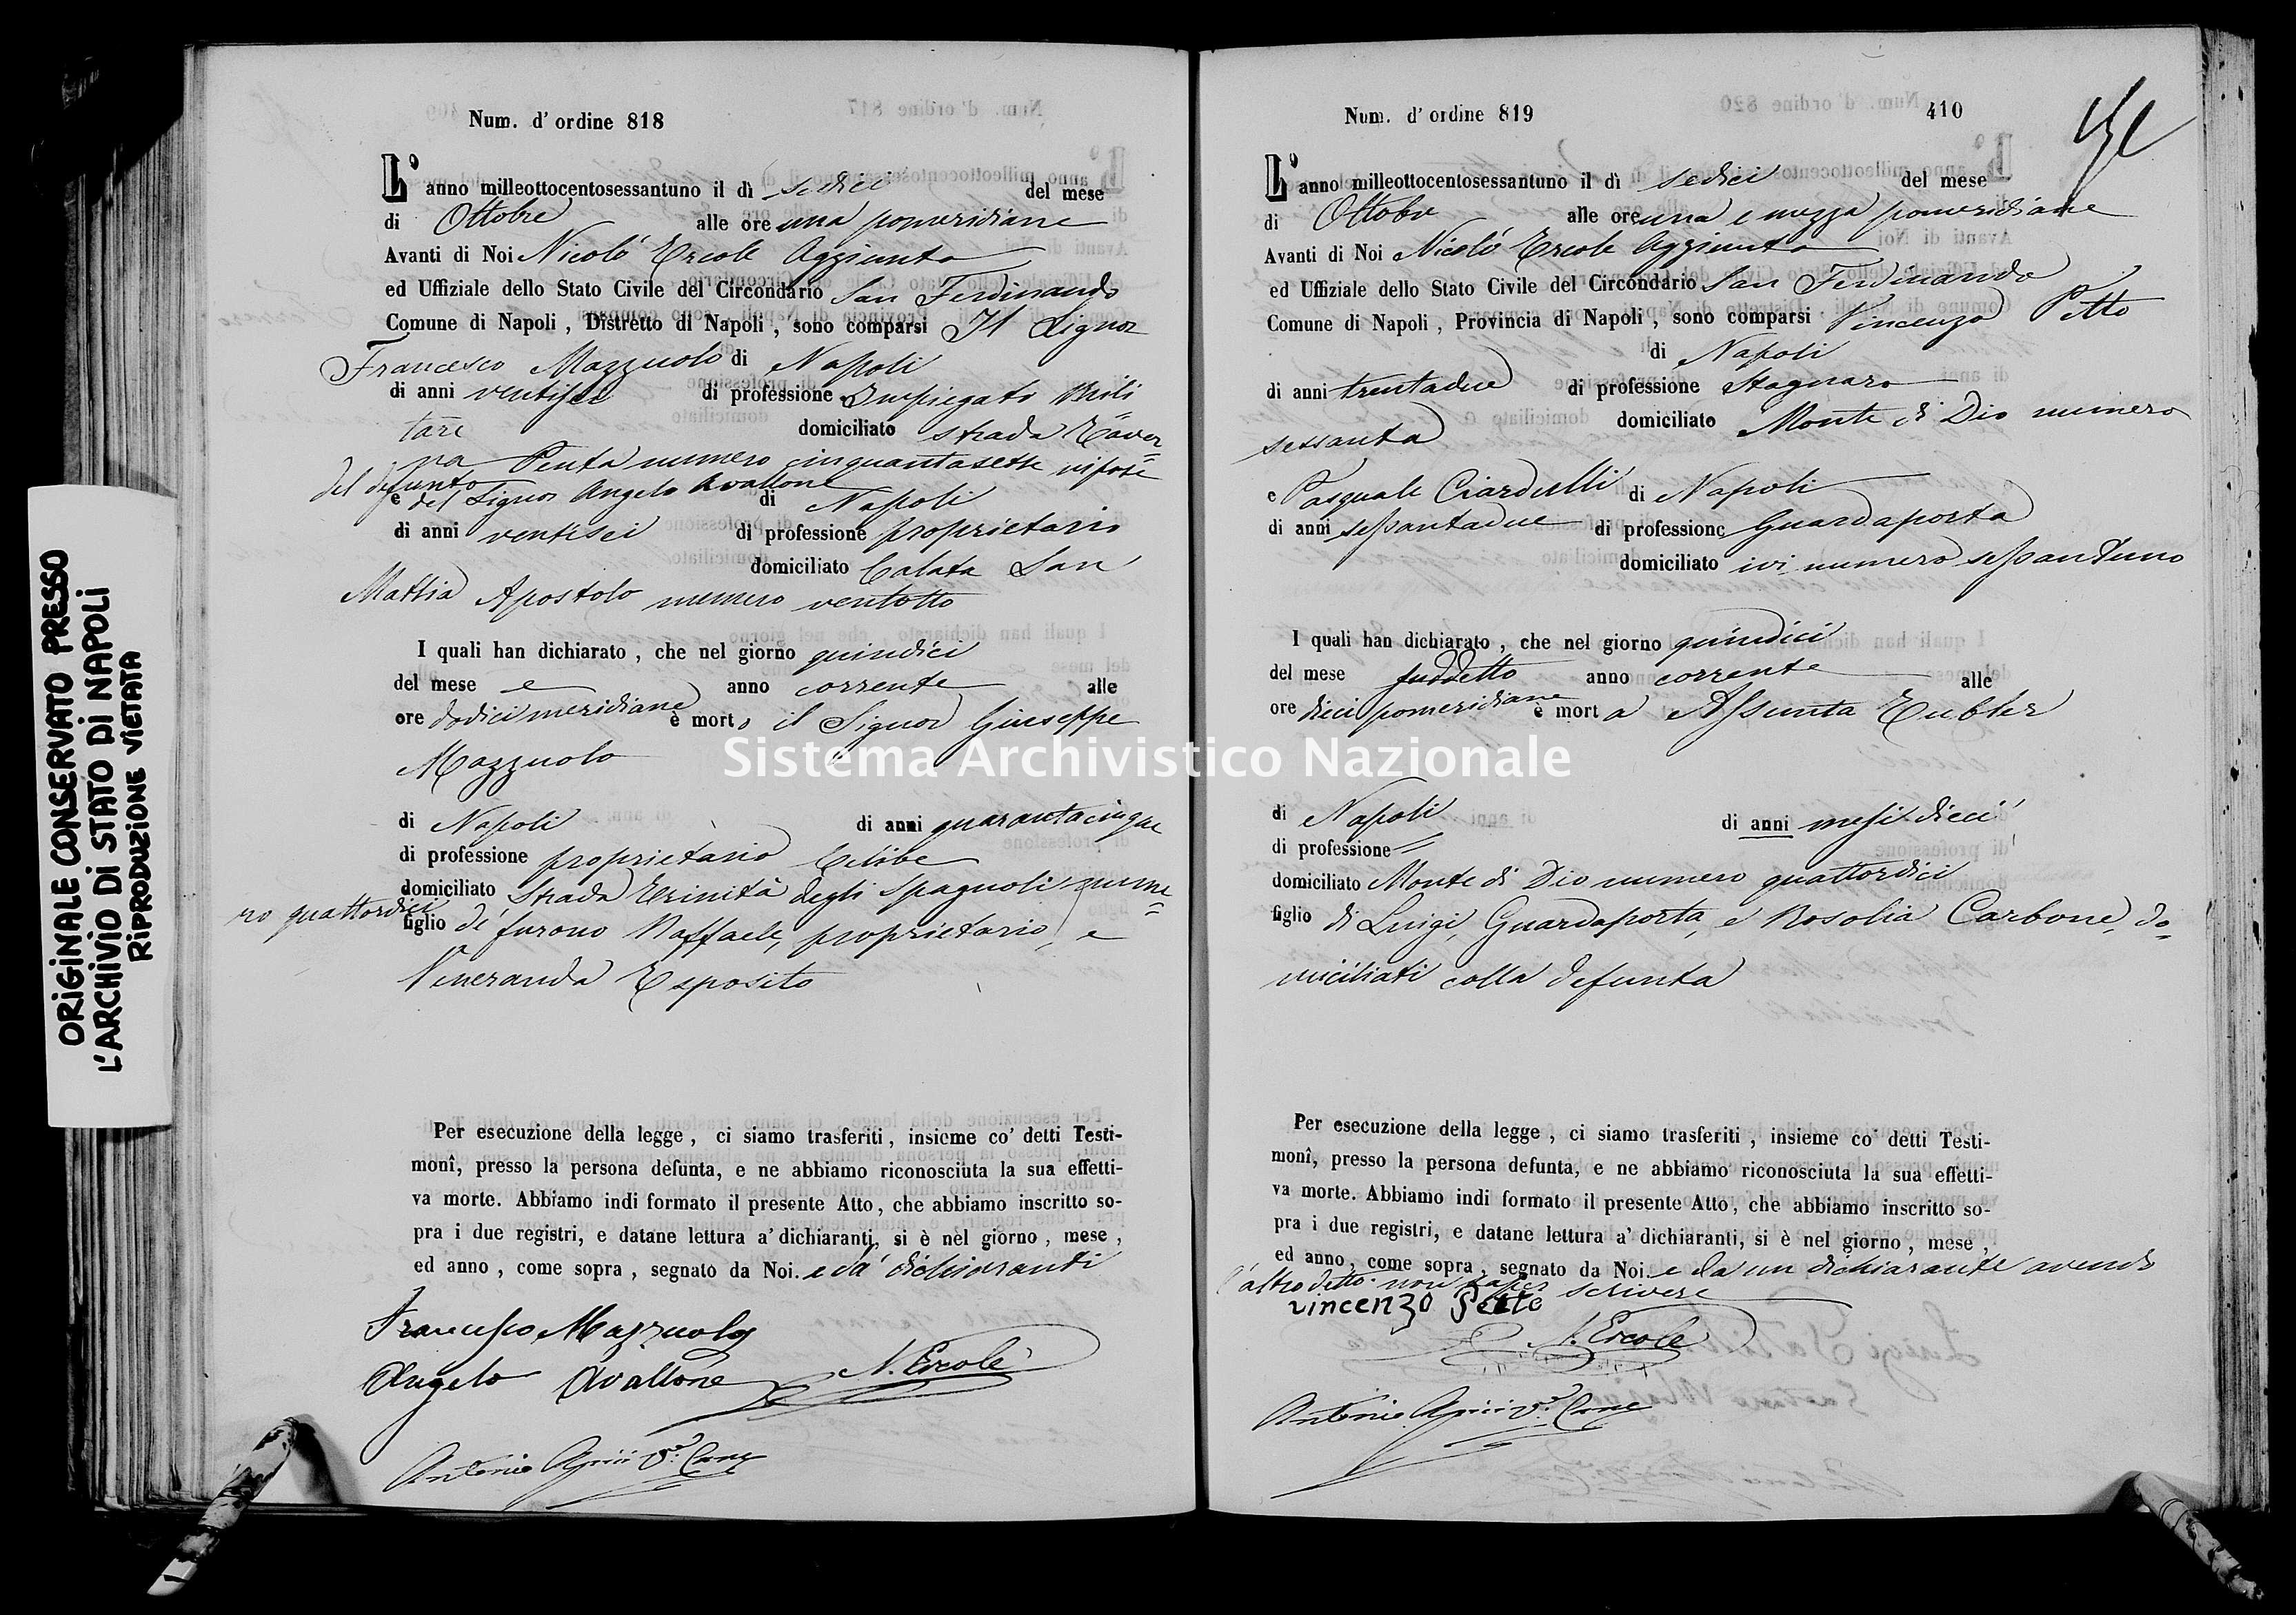 ORIGINALE CONSERVATO PRESSO
L'ARCHIVIO DI STATO DI NAPOLI
RIPRODUZIONE VIETATA
Num. d'ordine 818
L'anno milleottocentosessantuno il dì sedici del mese
di Ottobre alle ore una pomeridiane
Avanti di Noi Nicolò Ercole Aggiunto
ed Uffiziale dello Stato Civile del Circondario San Ferdinando
Comune di Napoli, Distretto di Napoli, sono comparsi Il Signor
Francesco Mazzuolo di Napoli
di anni ventisei di professione Impiegato Mili
tare domiciliato strada Taver=
na Penta numero cinquantasette nipote
del defunto
e del Signor Angelo Avallone di Napoli
di anni ventisei di professione proprietario
domiciliato Calata San
Mattia Apostolo numero ventotto
I quali han dichiarato, che nel giorno quindici
del mese e anno corrente alle
ore dodici meridiane è morto il Signor Giuseppe
Mazzuolo
di Napoli di anni quarantacinque
di professione proprietario Celibe
domiciliato Strada Trinità degli Spagnoli nume=
ro quattordici
figlio de' furono Raffaele, proprietario, e
Veneranda Esposito
Per esecuzione della legge, ci siamo trasferiti, insieme co' detti Testi-
monî, presso la persona defunta, e ne abbiamo riconosciuta la sua effetti-
va morte. Abbiamo indi formato il presente Atto, che abbiamo inscritto so-
pra i due registri, e datane lettura a' dichiaranti, si è nel giorno, mese,
ed anno, come sopra, segnato da Noi e da' dichiaranti
Francesco Mazzuolo
Angelo Avallone N. Ercole
Antonio
Num. d'ordine 819 410
L'anno milleottocentosessantuno il dì sedici del mese
di Ottobre alle ore una e mezza pomeridiane
Avanti di Noi Nicolò Ercole Aggiunto
ed Uffiziale dello Stato Civile del Circondario San Ferdinando
Comune di Napoli, Provincia di Napoli, sono comparsi Vincenzo Petto
di Napoli
di anni trentadue di professione Stagnaro
domiciliato Monte di Dio numero
sessanta
e Pasquale Ciardulli di Napoli
di anni sessantadue di professione Guardaporta
domiciliato ivi numero sessantuno
I quali han dichiarato, che nel giorno quindici
del mese suddetto anno corrente alle
ore dieci pomeridiane è morta Assunta Tubler
di Napoli di anni mesi dieci
di professione =
domiciliato Monte di Dio numero quattordici
figlio di Luigi, Guardaporta, e Rosolia Carbone, do=
miciliati colla defunta
Per esecuzione della legge, ci siamo trasferiti, insieme co' detti Testi-
monî, presso la persona defunta, e ne abbiamo riconosciuta la sua effetti-
va morte. Abbiamo indi formato il presente Atto, che abbiamo inscritto so-
pra i due registri, e datane lettura a' dichiaranti, si è nel giorno, mese,
ed anno, come sopra, segnato da Noi e da un dichiarante avendo
l'altro detto non saper scrivere
vincenzo Petto
N. Ercole
Antonio
Sistema Archivistico Nazionale